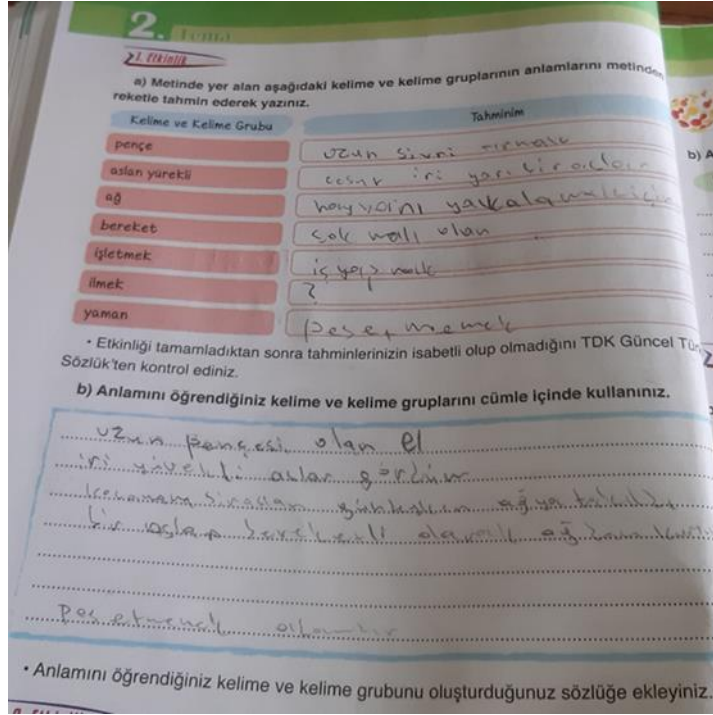 2. Tema
1. Etkinlik
a) Metinde yer alan aşağıdaki kelime ve kelime gruplarının anlamlarını metinden
reketle tahmin ederek yazınız.
Kelime ve Kelime Grubu Tahminim
pençe uzun sivri tırnak
aslan yürekli cesur iri yarı
ağ hayvanı yakalamak için
bereket çok malı olan
işletmek iş yapmak
ilmek ?
yaman pes etmemek
• Etkinliği tamamladıktan sonra tahminlerinizin isabetli olup olmadığını TDK Güncel Tür
Sözlük'ten kontrol ediniz.
b) A
b) Anlamını öğrendiğiniz kelime ve kelime gruplarını cümle içinde kullanınız.
uzun pençesi olan el
iri yürekli aslan gördüm
bir aslan bereketli olarak
pes etmemek
• Anlamını öğrendiğiniz kelime ve kelime grubunu oluşturduğunuz sözlüğe ekleyiniz.